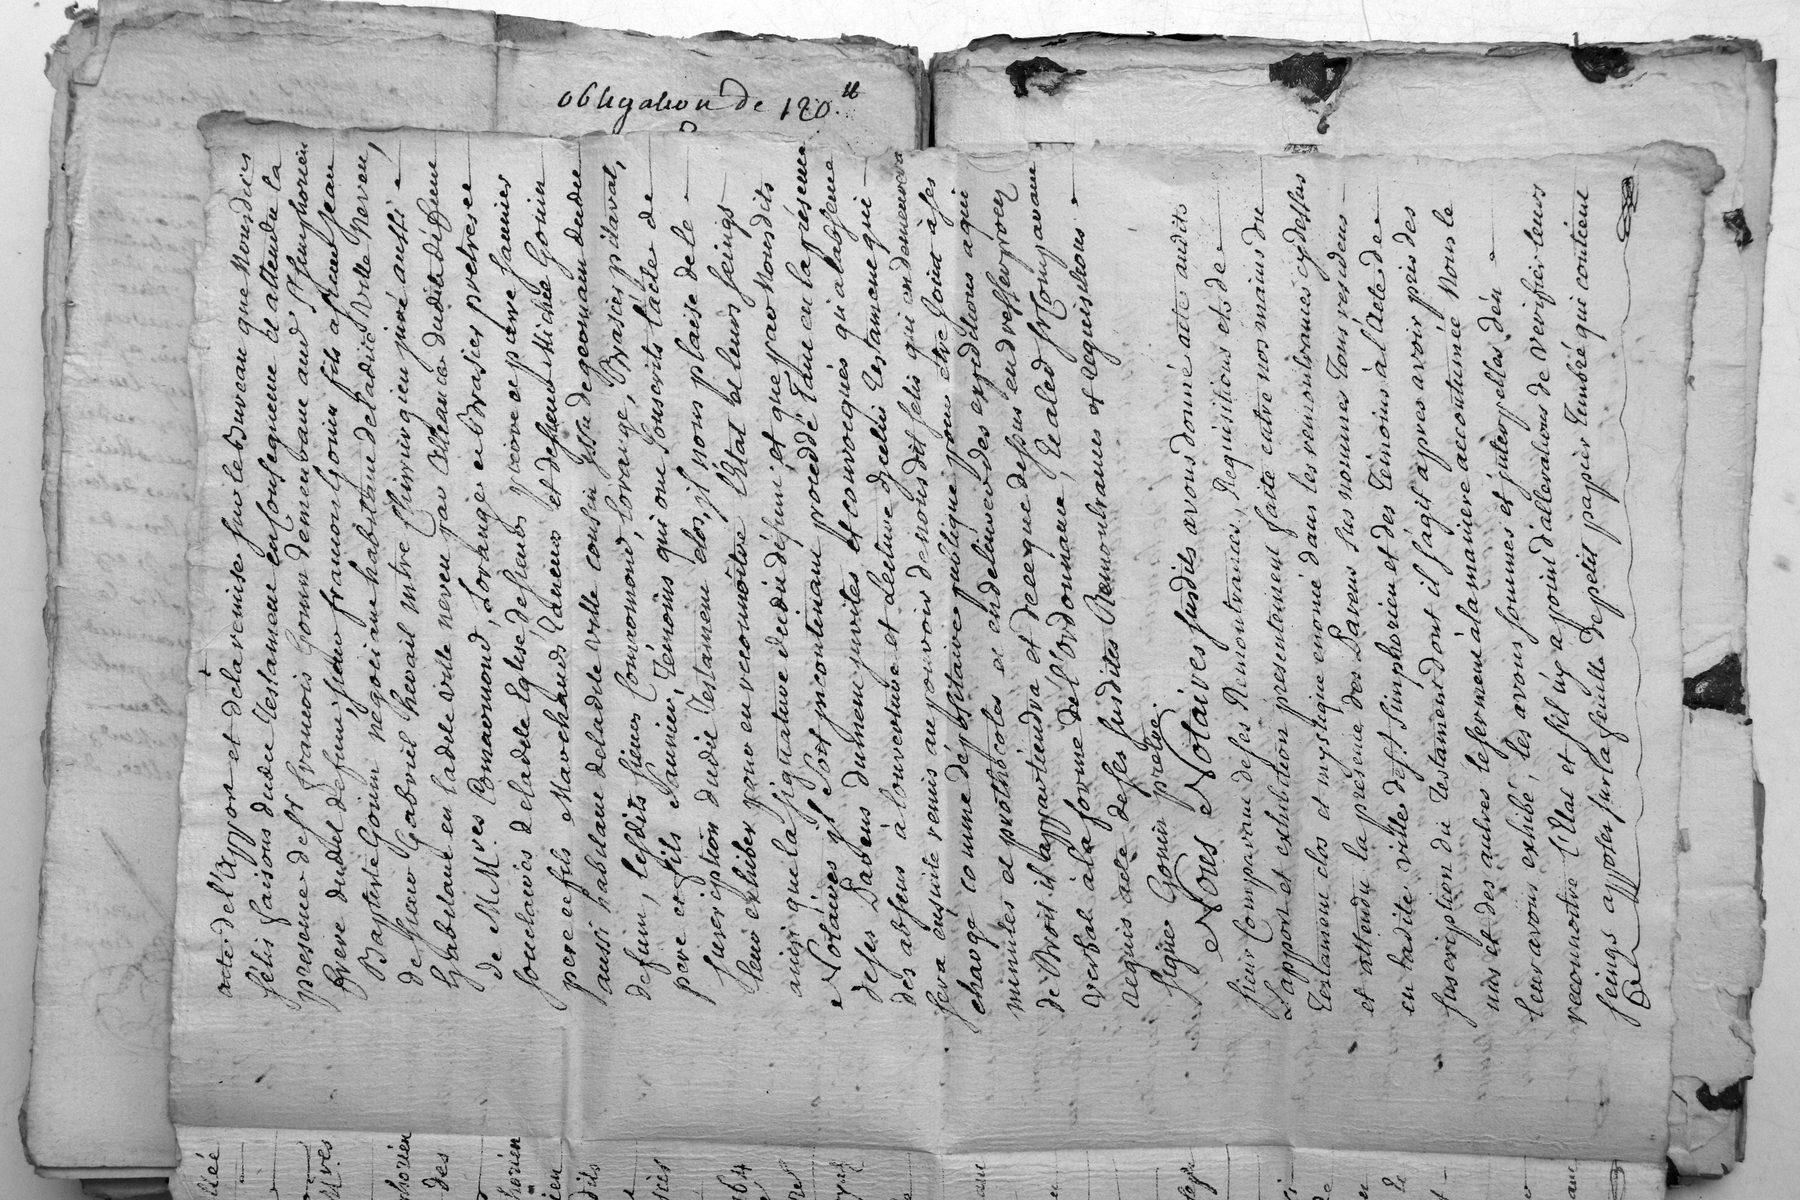 obligation de 120.tt
acte de l'apport et de la remise sur le Bureau que Nousdits
felis faisons dudit Testament en Consequence et attendu la
presence de Sr francois Gonin demeurant aud St Simphorien
frere dudit defunt, sieur franmon Gonin fils a sieur Jean
Baptiste Gonin negotiant habitant de ladite ville Neveu,
de sieur Gabriel hervail mtre Chirurgien juré aussi
habitant en ladte ville neveu par alleance dudit défunt
de M.M.res Comarmond, Lorange et Brasier pretres
societaires de ladte Eglise de sieurs pierre et pierre fannier
pere et fils Marchands Taneurs et de sieur Michel Gonin
aussi habitant de ladte ville cousin issu de germain dudit
defunt, lesdits sieurs Comarmond, Lorange, Brasier pitaval,
pere et fils fannier, Témoins qui ont Souscrits l'acte de
suscription dudit Testament clos, il vous plaise de le
leur exhiber pour en reconnoitre l'Etat et leurs seings
ainsi que la signature dudit défunt et que par Nousdits
Notaires il soit incontinant procédé tant en la présence
desds Parens dument invités et convoqués qu'a l'absence
des absens à l'ouverture et Lecture d'icelui Testament qui
sera ensuite remis au pouvoir de nousdit felis qui en demeurera
chargé comme dépositaire publique pour etre joint à ses
minutes et prothocoles et en delivrer des expeditions a qui
de Droit il appartiendra et de ce que dessus en dresser procez
verbal à la forme de l'ordonnance, et a led sr Comparant
requis acte de ses susdites Remontrances et requisitions
signé Gonin pretre.
Nous Notaires susdits avons donné acte audit
sieur Comparant de ses Remontrances, Requisitions et de
L'apport et exhibition presentement faite entre nos mains du
Testament clos et mystique enoncé dans les remontrances cy dessus
et attendu la presence des Parens sus nommés Tous residens
en ladite ville de St Simphorien et des Témoins à l'acte de
suscription du Testament dont il s'agit apres avoir pris des
uns et des autres le serment à la maniere accoutumée Nous le
leur avons exhibé, les avons sommés et interpellés d'en
reconnoitre l'Etat et s'il n'y a point d'alterations de verifier leurs
seings apposés sur la feuille de petit papier Timbré qui contient